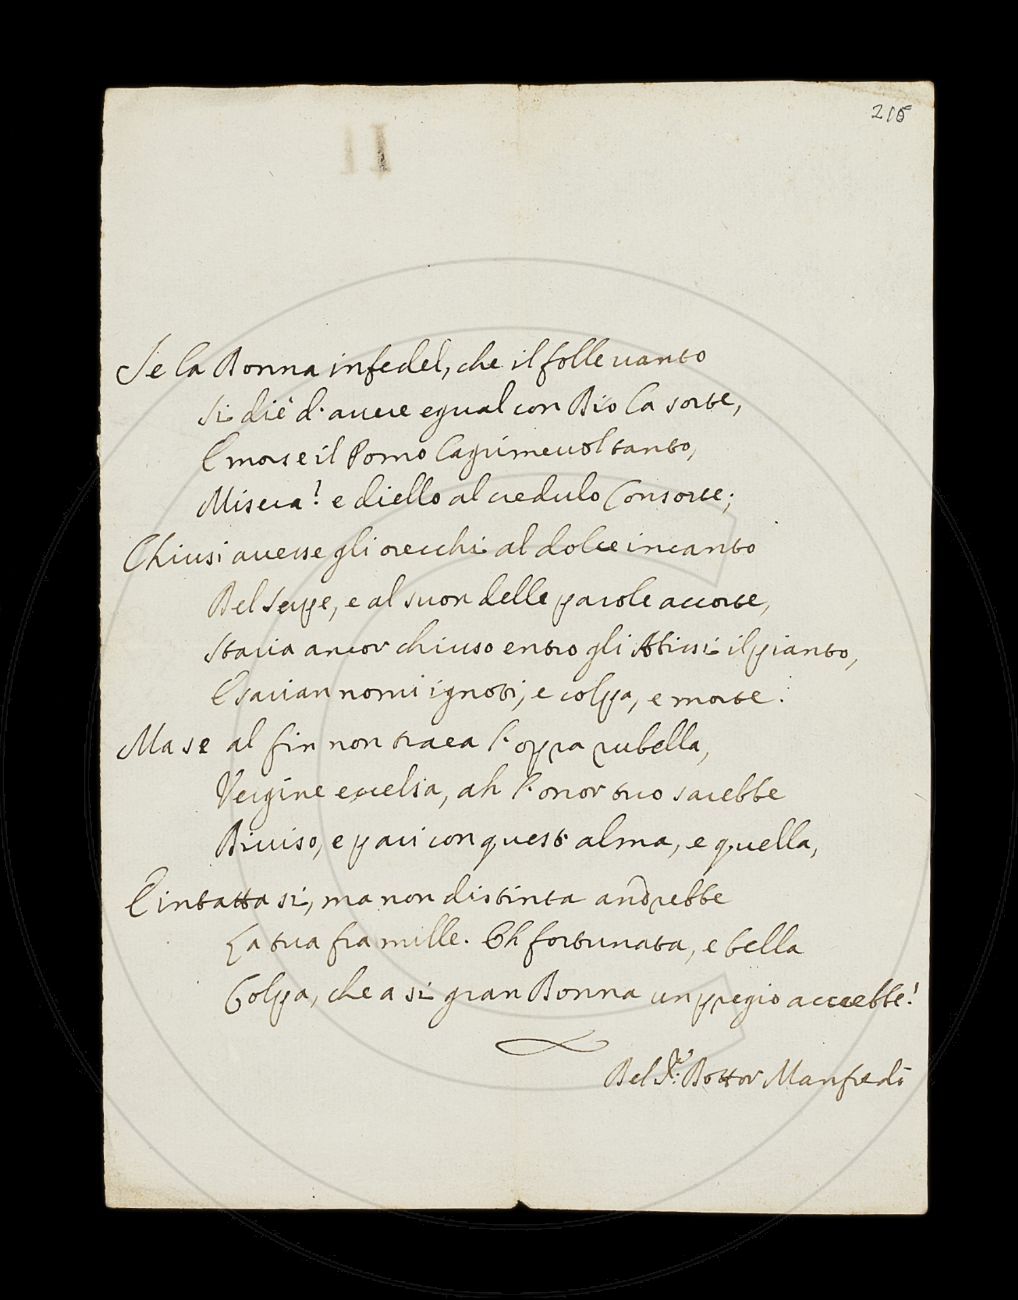 215
Se la Donna infedel, che il folle vanto
Si diè d'avere egual con Dio la sorte,
E morse il Pomo lagrimevol tanto,
Misera! e diello al credulo Consorte;
Chiusi avesse gli orecchi al dolce incanto
Del Serpe, e al suon delle parole accorte,
Staria ancor chiuso entro gli Abissi il pianto,
E sarian nomi ignoti, e colpa, e morte.
Ma se al fin non traea l'opra rubella,
Vergine eccelsa, ah l'onor tuo sarebbe
Diviso, e pari con quest'alma, e quella,
E intatta si, ma non distinta andrebbe
La tua fra mille. Oh fortunata, e bella
Colpa, che a si gran Donna un pregio accrebbe!
Del Sr. Dottor Manfredi